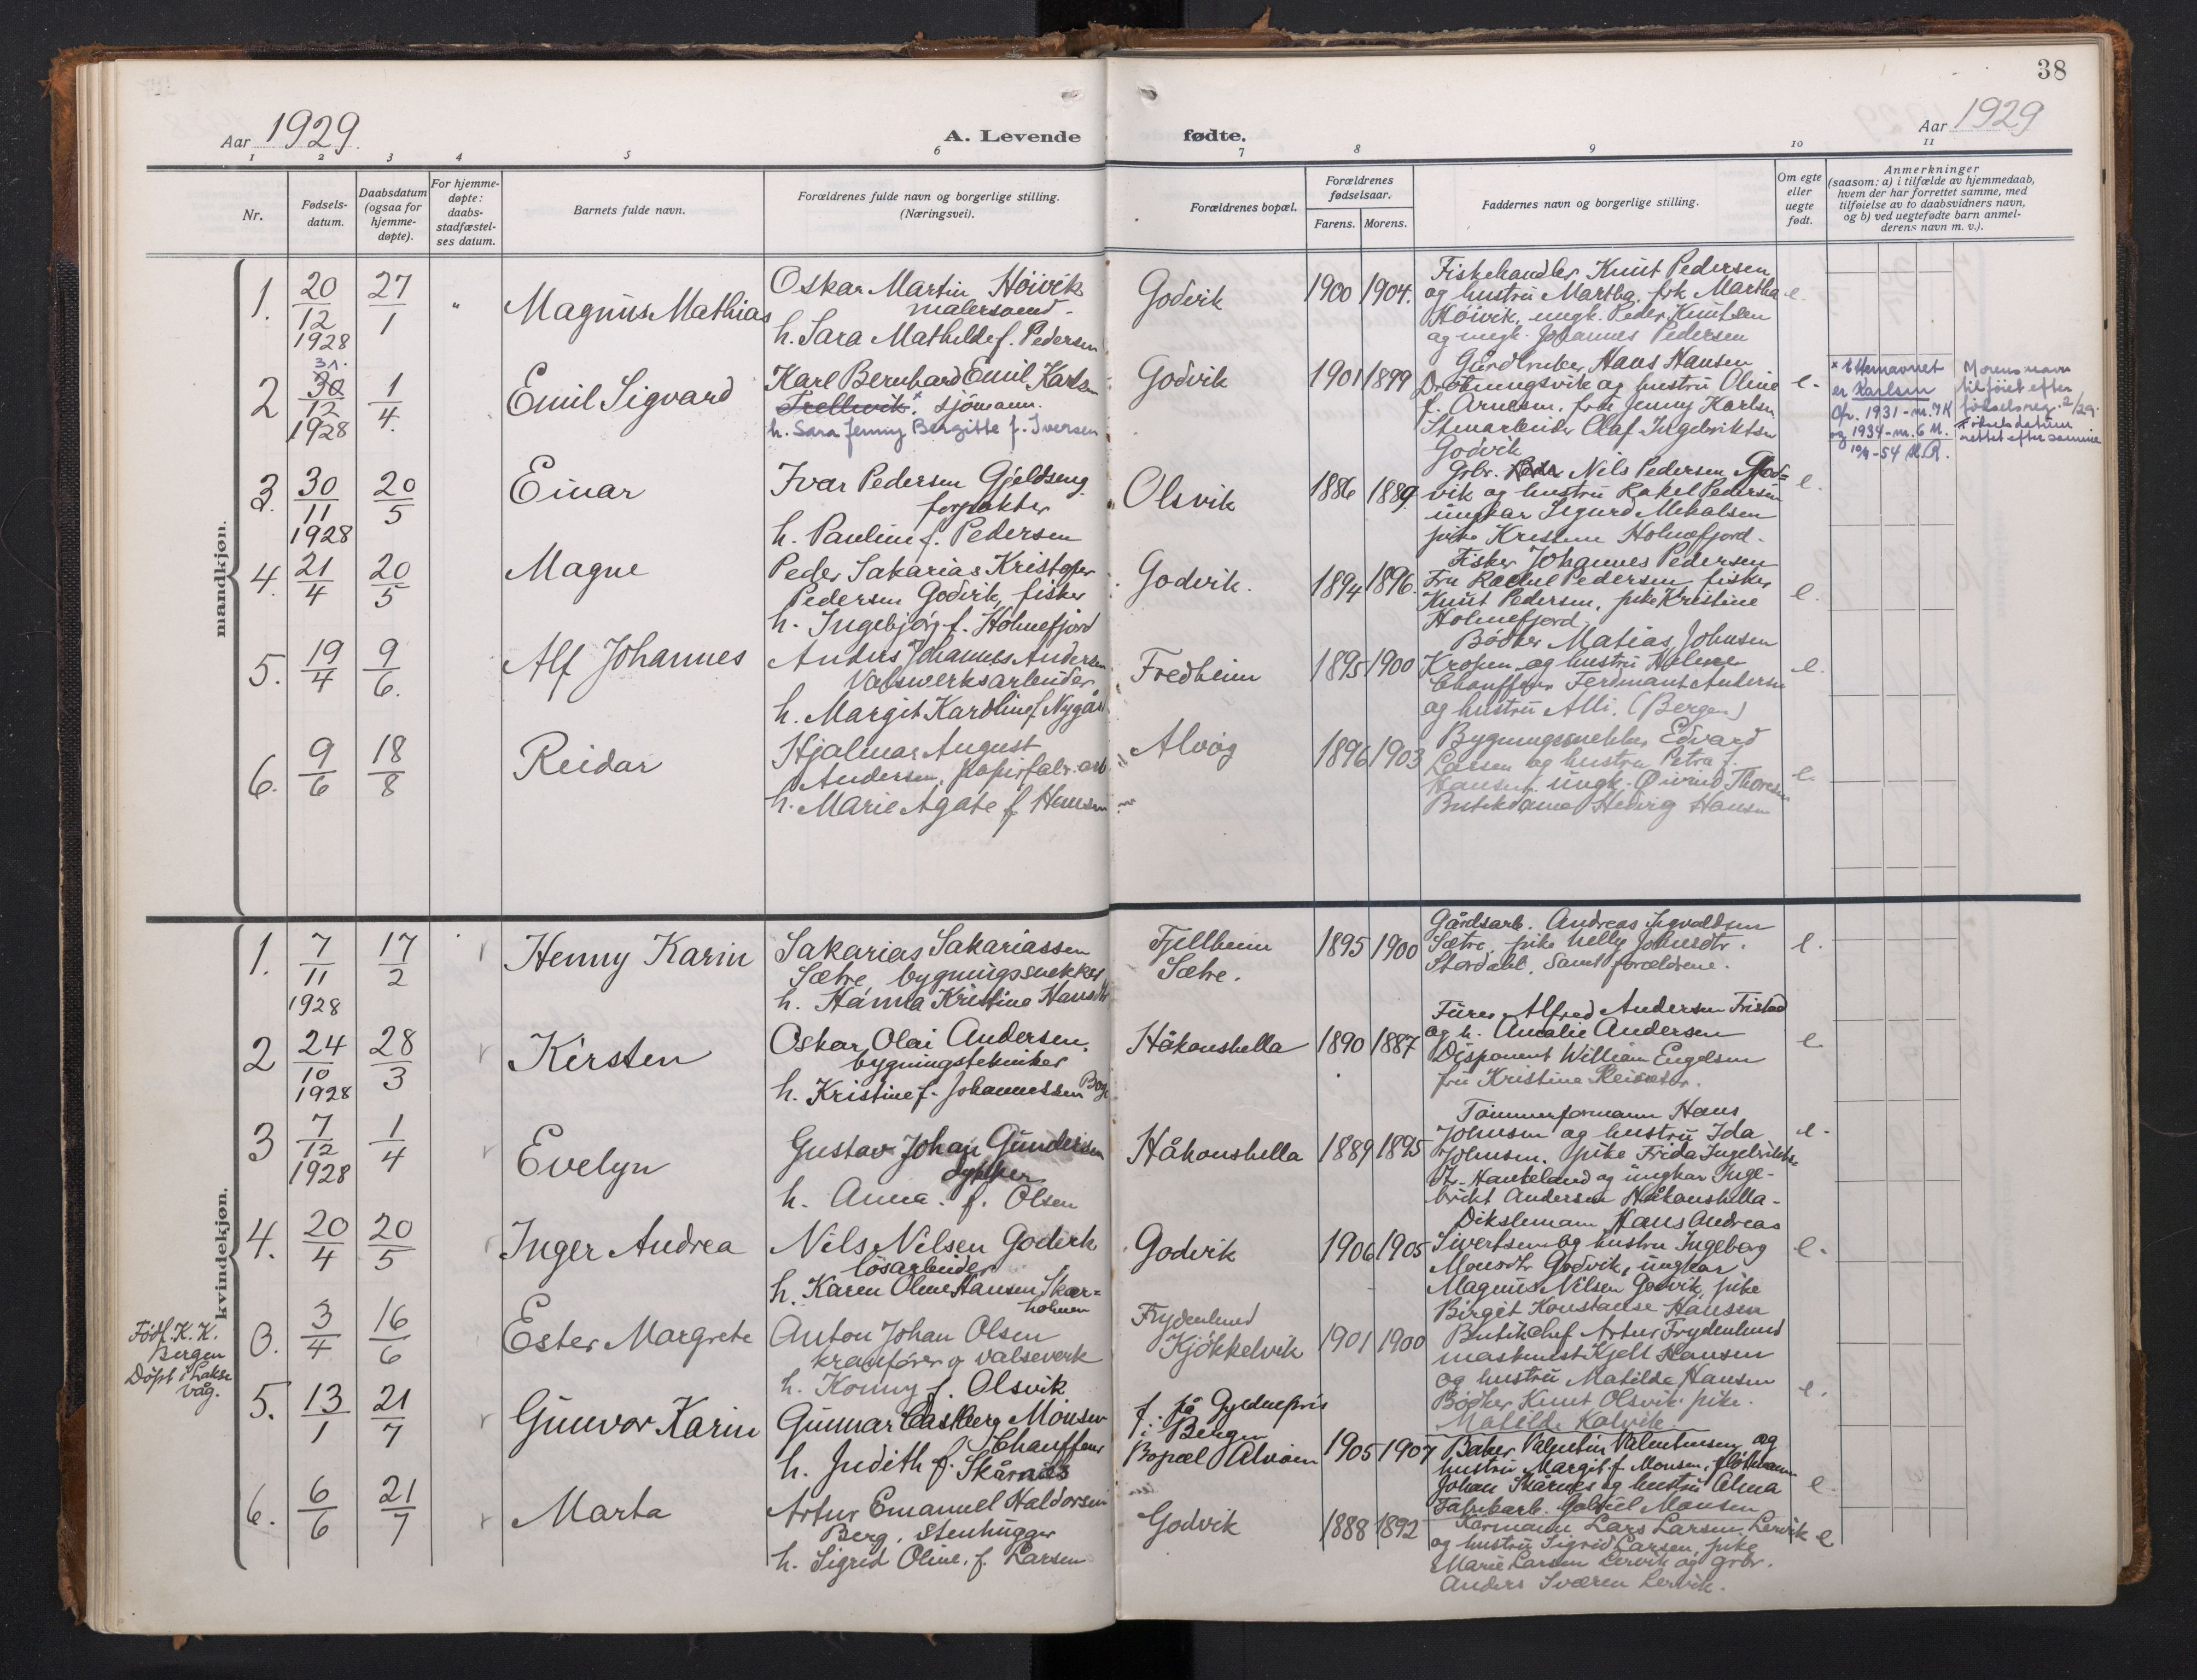 38
Aar 1929.
A. Levende
fødte.
Aar 1929
1 2 3 4 5 6 7 8 9 10 11
Nr.
Fødsels-
datum.
Daabsdatum
(ogsaa for
hjemme-
døpte).
For hjemme-
døpte:
daabs-
stadfæstel-
ses datum.
Barnets fulde navn.
Forældrenes fulde navn og borgerlige stilling.
(Næringsvei).
Forældrenes bopæl.
Forældrenes
fødselsaar.
Farens. Morens.
Faddernes navn og borgerlige stilling.
Om egte
eller
uegte
født.
Anmerkninger
(saasom: a) i tilfælde av hjemmedaab,
hvem der har forrettet samme, med
tilføielse av to daabsvidners navn,
og b) ved uegtefødte barn anmel-
derens navn m. v.).
mandkjøn.
1.
20/12
1928
27/1
"
Magnus Mathias
Oskar Martin Höivik
malersvend
h. Sara Mathilde f. Pedersen
Godvik
1900 1904.
Fiskehandler Knut Pedersen
og hustru Martha, frk Martha
Höivik, ungk. Peder Knutsen
og ungk. Johannes Pedersen
e.
2
31.
30/12
1928
1/4.
Emil Sigvard
Karl Bernhard Emil Karlsen
Trellevik.x sjömann.
h. Sara Jenny Bergitte f. Iversen
Godvik
1901 1899
Gårdbruker Hans Hansen
Drotningsvik og hustru Oline
f. Arnesen, fru Jenny Karlsen
Stenarbeider Olaf Ingebriktsen
Godvik
e.
x Etternavnet
er Karlsen
Cfr. 1931 - nr. 7 K
og 1934 - nr. 6 M.
10/4 - 54 K.R.
Morens navn
tilföiet efter
födselsreg. 2/29.
Fødselsdatum
rettet efter samme
3.
30/11
1928
20/5
Einar
Ivar Pedersen Gjeldseng
forpakter
h. Pauline f. Pedersen
Olsvik
1886 1889.
Gbr. Nils Pedersen God-
vik og hustru Rakel Pedersen
ungkar Sigurd Mikalsen
pike Kristine Holmefjord.
e.
4.
21/4
20/5
Magne
Peder Sakarias Kristofer
Pedersen Godvik, fisker
h. Ingebjörg f. Holmefjord
Godvik.
1894 1896.
Fisker Johannes Pedersen
Fru Rachel Pedersen, fisker
Knut Pedersen, pike Kristine
Holmefjord.
e.
5.
19/4
9/6.
Alf Johannes
Anders Johannes Andersen
Valsverksarbeider
h. Margit Karoline f. Nygård
Fredheim
1895 1900
Bödker Matias Johnsen
Kropen og hustru Helene
Chauffeur Ferdinant Andersen
og hustru Alli. (Bergen)
e.
6.
9/6
18/8
Reidar
Hjalmar August
Andersen, papirfabr. arb
h. Marie Agate f Hansen
Alvög
1896 1903
Bygningssnekker Edvard
Larsen og hustru Petra f.
Hansen, ungk. Øivind Thoresen
Butikdame Hedvig Hansen
e.
kvindekjøn.
1.
7/11
1928
17/2
Henny Karin
Sakarias Sakariassen
Sætre, bygningssnekker
h. Hanna Kristina Hansdtr
Fjellheim
Sætre.
1895 1900
Gårdsarb. Andreas Sigvaldsen
Sætre, pike Nelly Johnsdtr.
Stordahl, Samt forældrene.
e.
2
24/10
1928
28/3
Kirsten
Oskar Olai Andersen.
bygningstekniker
h. Kristine f. Johannessen
Håkonshella
1890 1887
Fürer Alfred Andersen Fristad
og h. Amalie Andersen
Disponent William Engelsen
fru Kristine Reisæter.
e
3
7/12
1928
1/4
Evelyn
Gustav Johan Gundersen
dykker
h. Anna. f. Olsen
Håkonshella
1889 1895
Tömmerformann Hans
Johnsen og hustru Ida
Johnsen. pike Frida Ingebrikts
dtr. Hanteland og ungkar Inge-
brikt Andersen Håkonshella.
e.
4.
20/4
20/5
Inger Andrea
Nils Nilsen Godvik
lösarbeider
h. Karen Oline Hansen Skar-
holmen
Godvik
1906 1905
Dikslemann Hans Andreas
Sivertsen og hustru Ingeborg
Monsdtr Godvik, ungkar
Magnus Nilsen Godvik, pike
Birgit Konstanse Hansen
e.
Födt. K. K.
Bergen
Döpt i Lakse
våg.
0.
3/4
16/6
Ester Margrete
Anton Johan Olsen
kranförer og valseverk
h. Konny f. Olsvik
Frydenlund
Kjökkelvik
1901 1900
Butikchef Artur Frydenlund
maskinist Kjell Hansen
og hustru Matilde Hansen
Bödker Knut Olsvik pike.
Matilde Kalvik.
e.
5.
13/1
21/7
Gunvor Karin
Gunnar Carlberg Monsen
Chauffeur
h. Judith f. Skårnes
f. på Gyldenpris
i Bergen
Bopæl Alvöen
1905 1907
Baker Valentin Valentinsen og
hustru Margit f. Monsen,
Johan Skårnes og hustru Alma
Fabrikarb. Gabriel Monsen
e.
6.
6/6
21/7
Marta
Artur Emanuel Haldorsen
Berg, stenhugger
h. Sigrid Oline, f. Larsen
Godvik
1888 1892
Formann Lars Larsen Lervik
og hustru Sigrid Larsen, pike
Marie Larsen Lervik og grbr.
Anders Sværen Lervik.
e